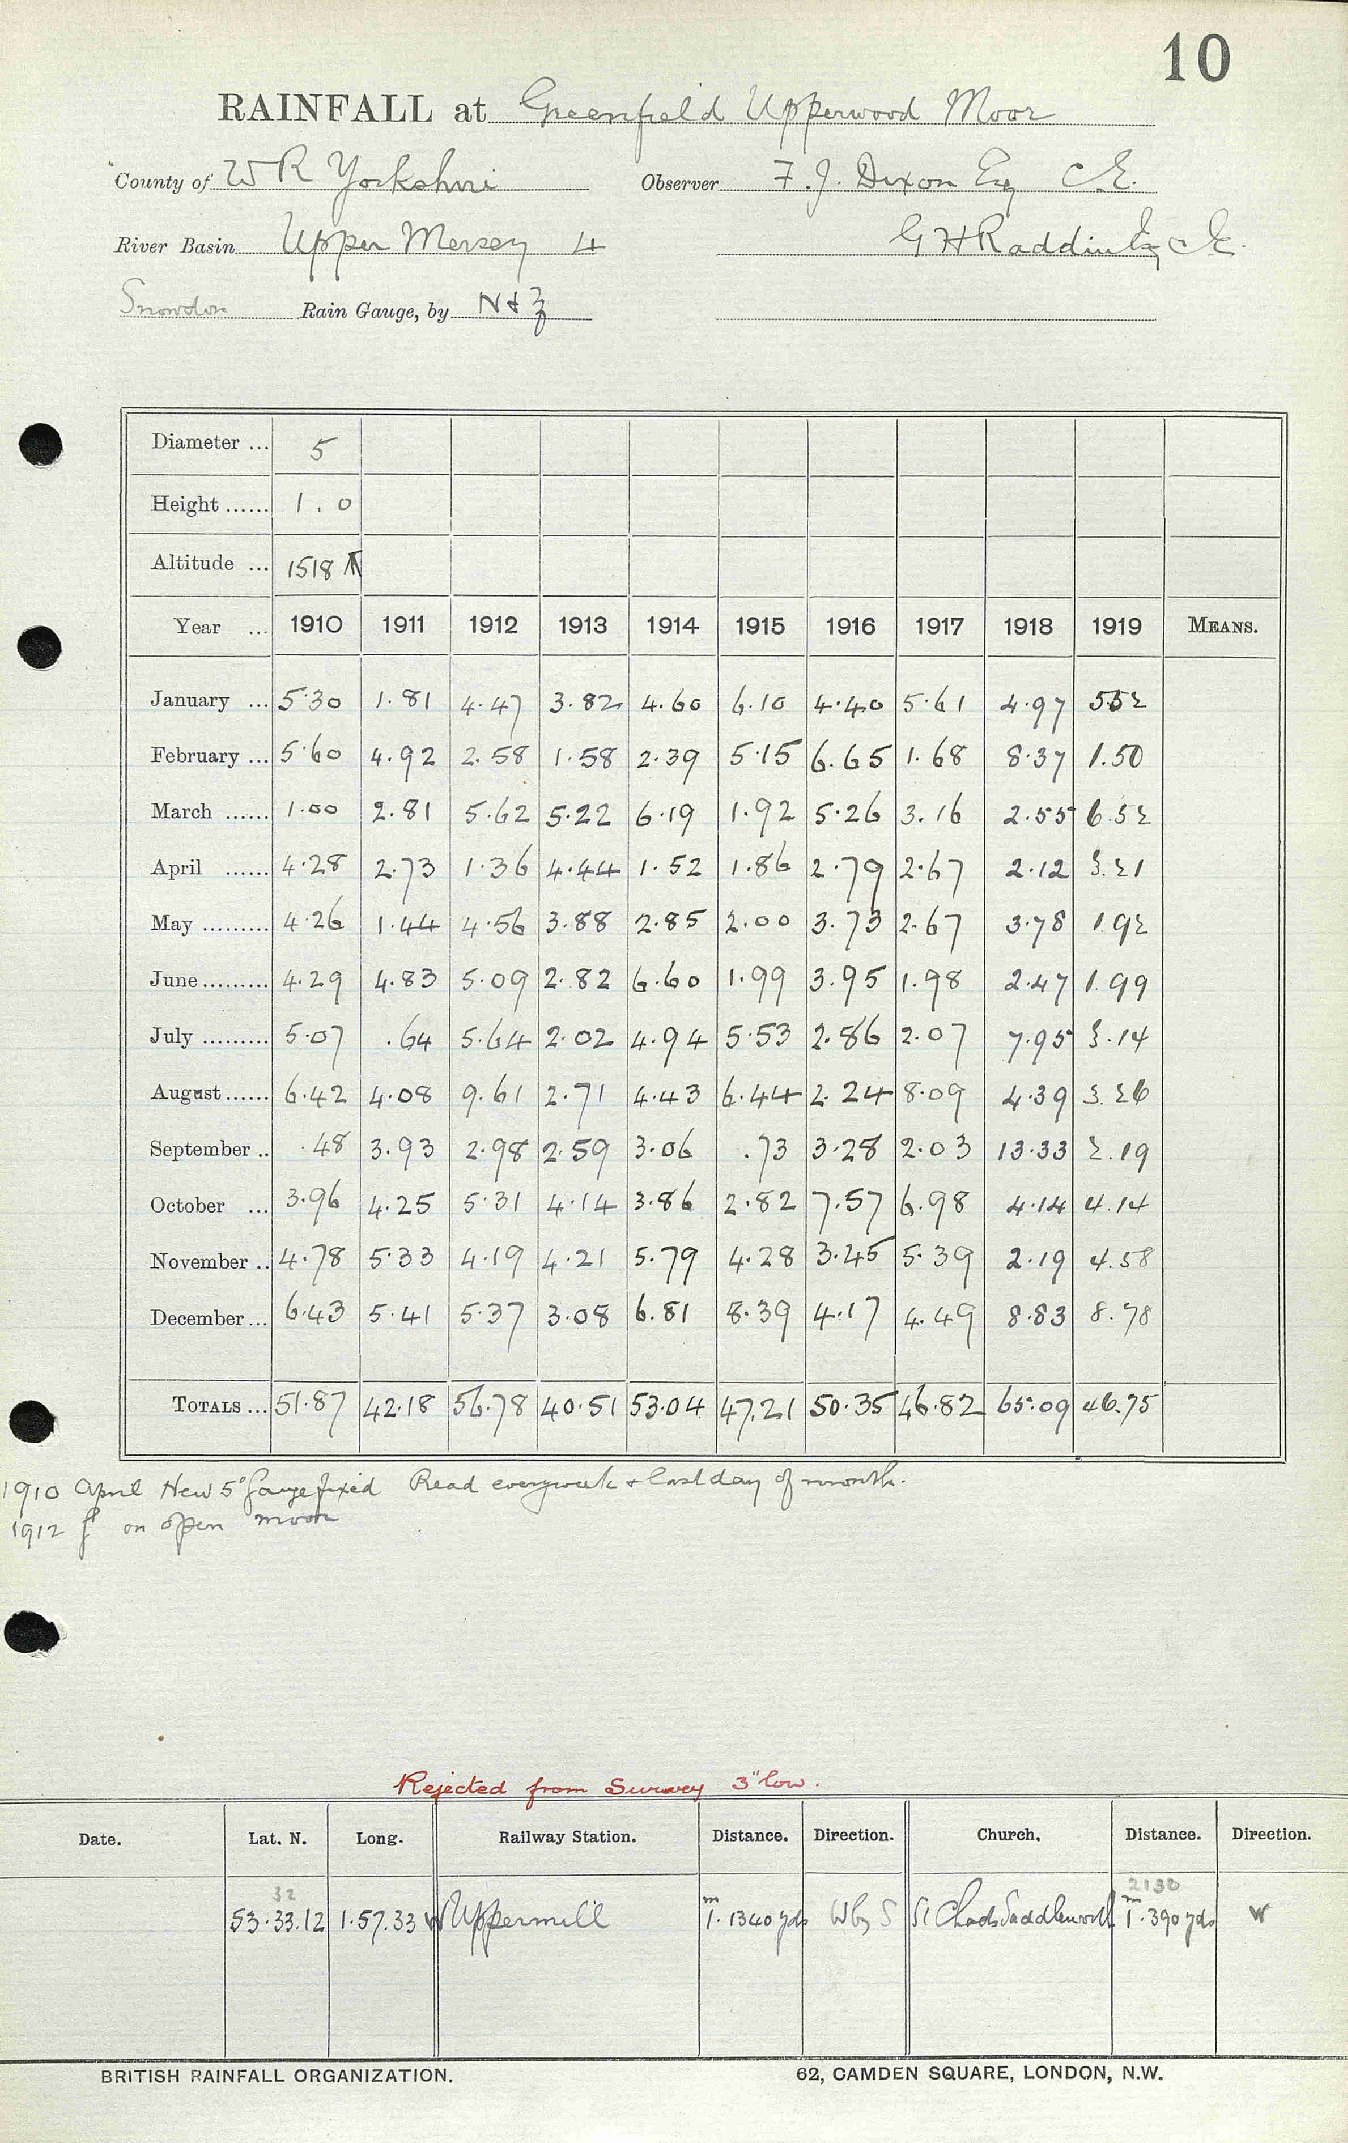 10
RAINFALL at Greenfield Upperwood Moor
County of W R Yorkshire Observer F. J. Dixon Esq C.E.
River Basin Upper Mersey 4 G H Raddin Esq C E.
Snowdon Rain Gauge, by N & Z
Diameter ... 5
Height ...... 1.0
Altitude ... 1518
Year ... 1910 1911 1912 1913 1914 1915 1916 1917 1918 1919 MEANS.
January ... 5.30 1.81 4.47 3.82 4.60 6.10 4.40 5.61 4.97 5.52
February ... 5.60 4.92 2.58 1.58 2.39 5.15 6.65 1.68 8.37 1.50
March ...... 1.00 2.81 5.62 5.22 6.19 1.92 5.26 3.16 2.55 6.52
April ...... 4.28 2.73 1.36 4.44 1.52 1.86 2.79 2.67 2.12 3.21
May ......... 4.26 1.44 4.56 3.88 2.85 2.00 3.73 2.67 3.78 1.92
June ......... 4.29 4.83 5.09 2.82 6.60 1.99 3.95 1.98 2.47 1.99
July ......... 5.07 .64 5.64 2.02 4.94 5.53 2.86 2.07 7.95 3.14
August ...... 6.42 4.08 9.61 2.71 4.43 6.44 2.24 8.09 4.39 3.26
September .. .48 3.93 2.98 2.59 3.06 .73 3.28 2.03 13.33 2.19
October ... 3.96 4.25 5.31 4.14 3.86 2.82 7.57 6.98 4.14 4.14
November .. 4.78 5.33 4.19 4.21 5.79 4.28 3.45 5.39 2.19 4.58
December ... 6.43 5.41 5.37 3.08 6.81 8.39 4.17 4.49 8.83 8.78
TOTALS ... 51.87 42.18 56.78 40.51 53.04 47.21 50.35 46.82 65.09 46.75
1910 April New 5" Gauge fixed Read every week & last day of month.
1912 on open moor
Rejected from Survey 3" low.
Date. Lat. N. Long. Railway Station. Distance. Direction. Church. Distance. Direction.
32 2130
53.33.12 1.57.33 W Uppermill 1m. 1340 yds W by S St Chads Saddleworth 1m. 390 yds W
BRITISH RAINFALL ORGANIZATION. 62, CAMDEN SQUARE, LONDON, N.W.